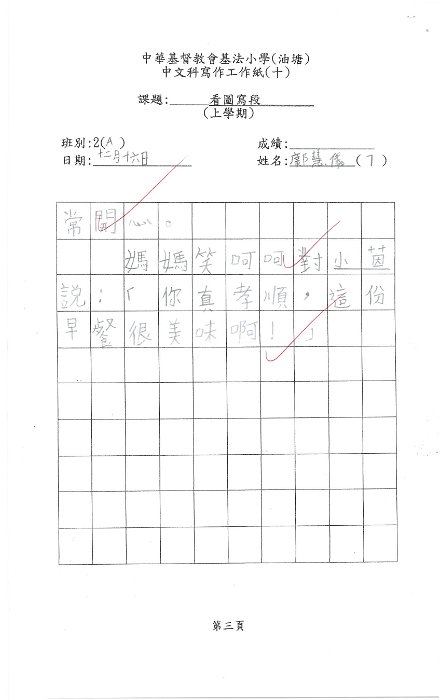 中華基督教會基法小學(油塘)
中文科寫作工作紙(十)
課題: 看圖寫段
(上學期)
班別:2(A)
成績:
日期:十二月十六日
姓名:鄭慧儀(7)
常悶心。
媽媽笑呵呵對小茵
說:「你真孝順,這份
早餐很美味啊!」
第三頁